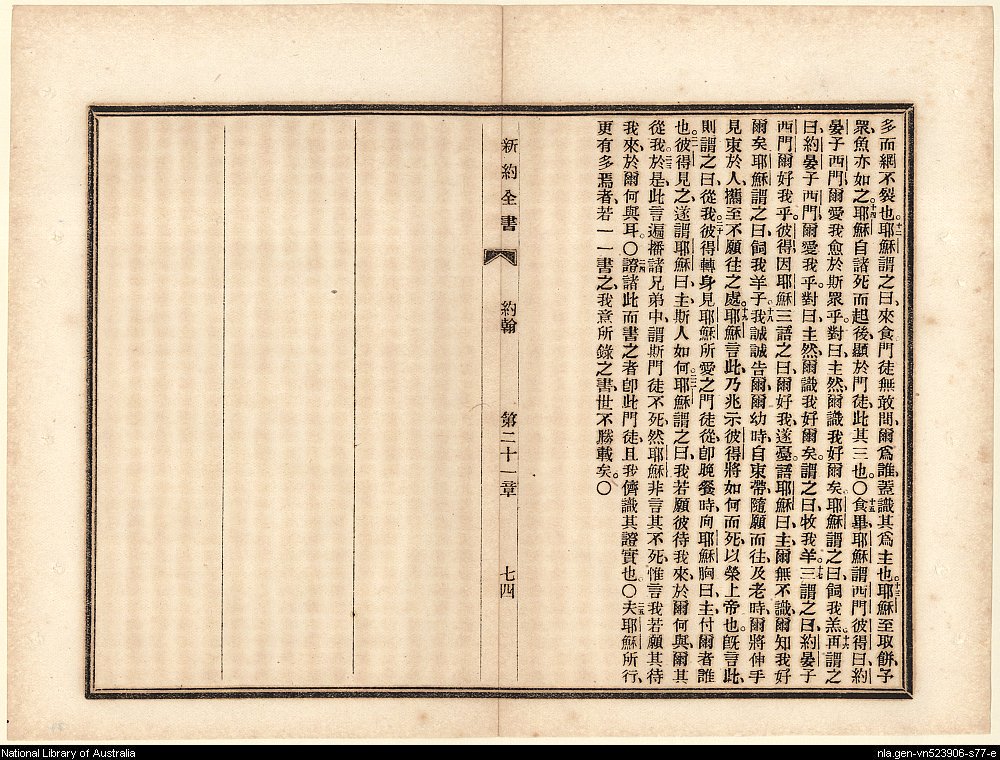 多而網不裂也。十二耶穌謂之曰、來食、門徒無敢問爾爲誰、蓋識其爲主也。十三耶穌至、取餅予
眾、魚亦如之。十四耶穌自諸死而起後、顯於門徒、此其三也。〇十五食畢、耶穌謂西門彼得曰、約
晏子西門、爾愛我愈於斯眾乎、對曰、主然、爾識我好爾矣、耶穌謂之曰、飼我羔。十六再謂之
曰、約晏子西門、爾愛我乎、對曰、主然、爾識我好爾矣、謂之曰、牧我羊。十七三謂之曰、約晏子
西門、爾好我乎、彼得因耶穌三語之曰、爾好我、遂憂、語耶穌曰、主、爾無不識、爾知我好
爾矣、耶穌謂之曰、飼我羊子。十八我誠誠告爾、爾幼時、自束帶、隨願而往、及老時、爾將伸手
見束於人、攜至不願往之處。十九耶穌言此、乃兆示彼得將如何而死、以榮上帝也。旣言此、
則謂之曰、從我。二十彼得轉身、見耶穌所愛之門徒從、卽晚餐時、向耶穌胸曰、主、付爾者誰
也。二一彼得見之、遂謂耶穌曰、主、斯人如何。二二耶穌謂之曰、我若願彼待我來、於爾何與、爾其
從我。二三於是此言遍播諸兄弟中、謂斯門徒不死、然耶穌非言其不死、惟言我若願其待
我來、於爾何與耳。〇二四證諸此而書之者、卽此門徒、且我儕識其證實也。〇二五夫耶穌所行、
更有多焉者、若一一書之、我意所錄之書、世不勝載矣。〇
新約全書 約翰 第二十一章 七四
National Library of Australia
nla.gen-vn523906-s77-e